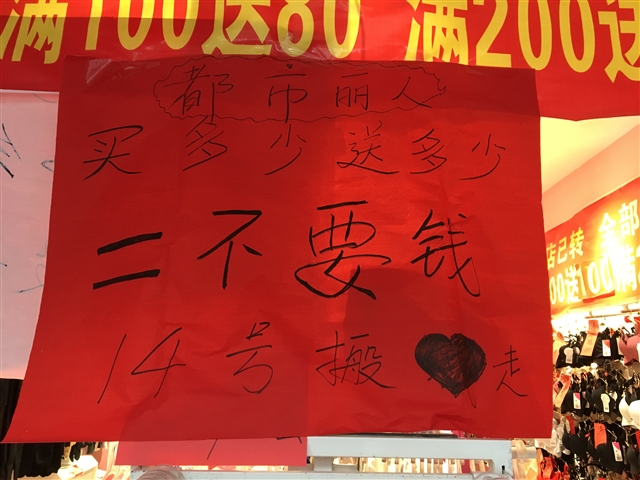 满100送80 满200送
都市丽人
买多少送多少
二不要钱
14号搬走
店已转 全部
00送100满